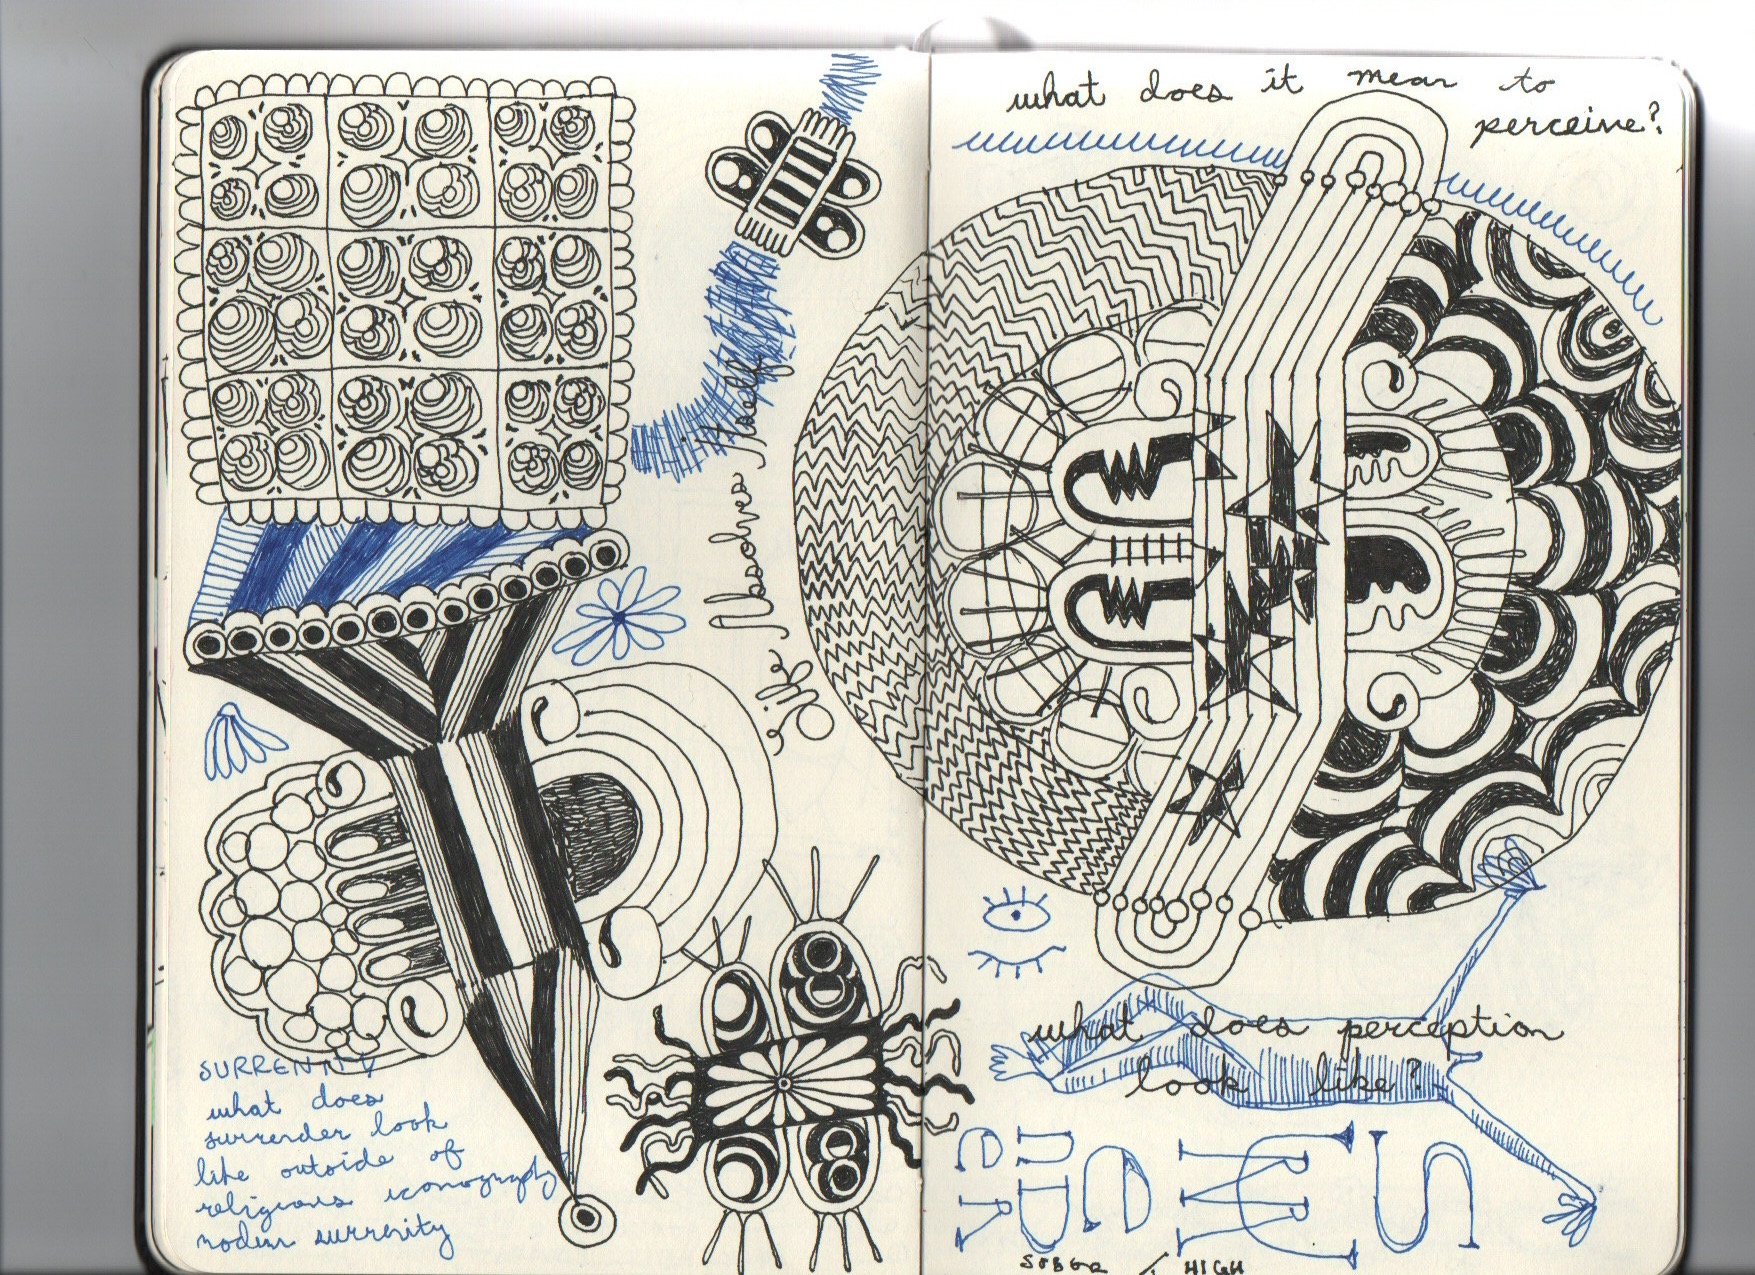 what does it mean to
perceive?
Silk Absolves Itself
SURRENITY
what does
surrender look
like outside of
religious iconography
modern surrenity
what does perception
look like?
SURRENDER
SOBER / HIGH